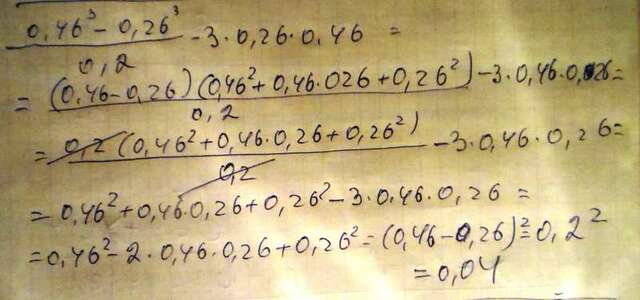 0,46³ - 0,26³
0,2
- 3·0,26·0,46 =
= (0,46-0,26)(0,46²+0,46·026+0,26²)
0,2
-3·0,46·0,26=
= 0,2(0,46²+0,46·0,26+0,26²)
0,2
-3·0,46·0,26=
= 0,46²+0,46·0,26+0,26²-3·0,46·0,26 =
=0,46²-2·0,46·0,26+0,26²=(0,46-0,26)²=0,2²
=0,04